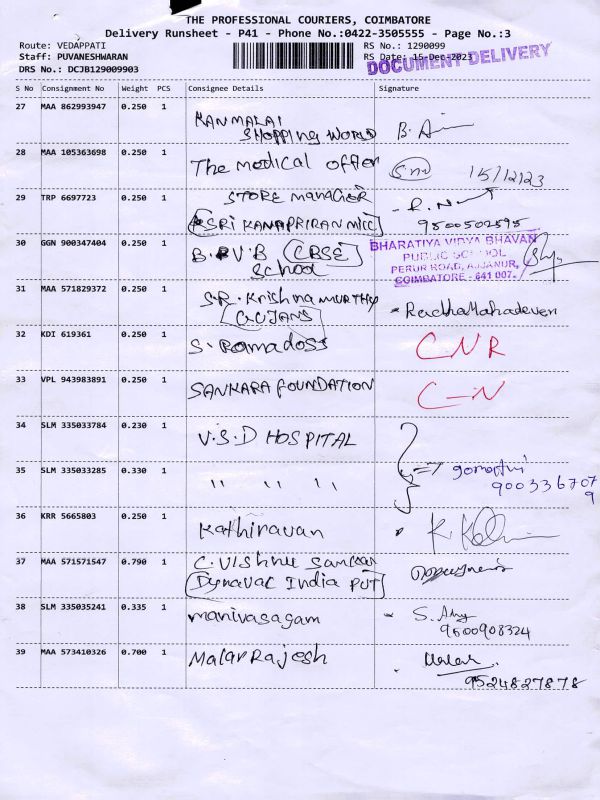 THE PROFESSIONAL COURIERS, COIMBATORE
Delivery Runsheet - P41 - Phone No.:0422-3505555 - Page No.:3
Route: VEDAPPATI
RS No.: 1290099
Staff: PUVANESHWARAN
RS Date: 15-Dec-2023
DOCUMENT DELIVERY
DRS No.: DCJB129009903
S No Consignment No Weight PCS Consignee Details Signature
27 MAA 862993947 0.250 1
KANMALAI
SHOPPING WORLD B.
28 MAA 105363698 0.250 1
The medical offer 15/12/23
29 TRP 6697723 0.250 1
STORE manager
SRI KANAPRIRAN MILL 9500502595
30 GGN 900347404 0.250 1
B.V.B (CBSE)
School
BHARATIYA VIDYA BHAVAN
PUBLIC SCHOOL
PERUR ROAD, AJJANUR,
COIMBATORE - 641 007.
31 MAA 571829372 0.250 1
S.R. Krishna MURTHY
GUJANS
RadhaMahadeven
32 KDI 619361 0.250 1
S. Ramadoss CNR
33 VPL 943983891 0.250 1
SANKARA FOUNDATION C-N
34 SLM 335033784 0.230 1
V.S.D HOSPITAL
35 SLM 335033285 0.330 1
" " " "
gomathi
9003367079
36 KRR 5665803 0.250 1
Kathiravan
37 MAA 571571547 0.790 1
C. Vishnu Sankar
Dynavac India PVT
38 SLM 335035241 0.335 1
manivasagam
9600908324
39 MAA 573410326 0.700 1
Malar Rajesh
Malar
9524827878